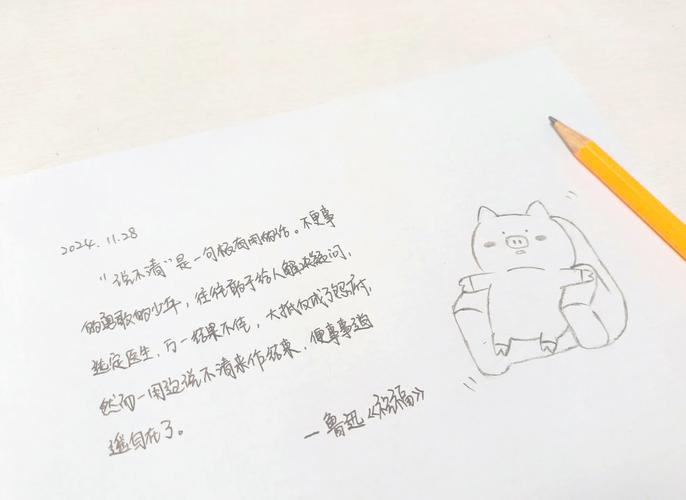 2024.11.28
“说不清”是一句极有用的话。不更事
的勇敢的少年，往往敢于给人解决疑问，
选定医生，万一结果不佳，大抵反成了怨府，
然而一用这说不清来作结束，便事事逍
遥自在了。
—鲁迅《祝福》